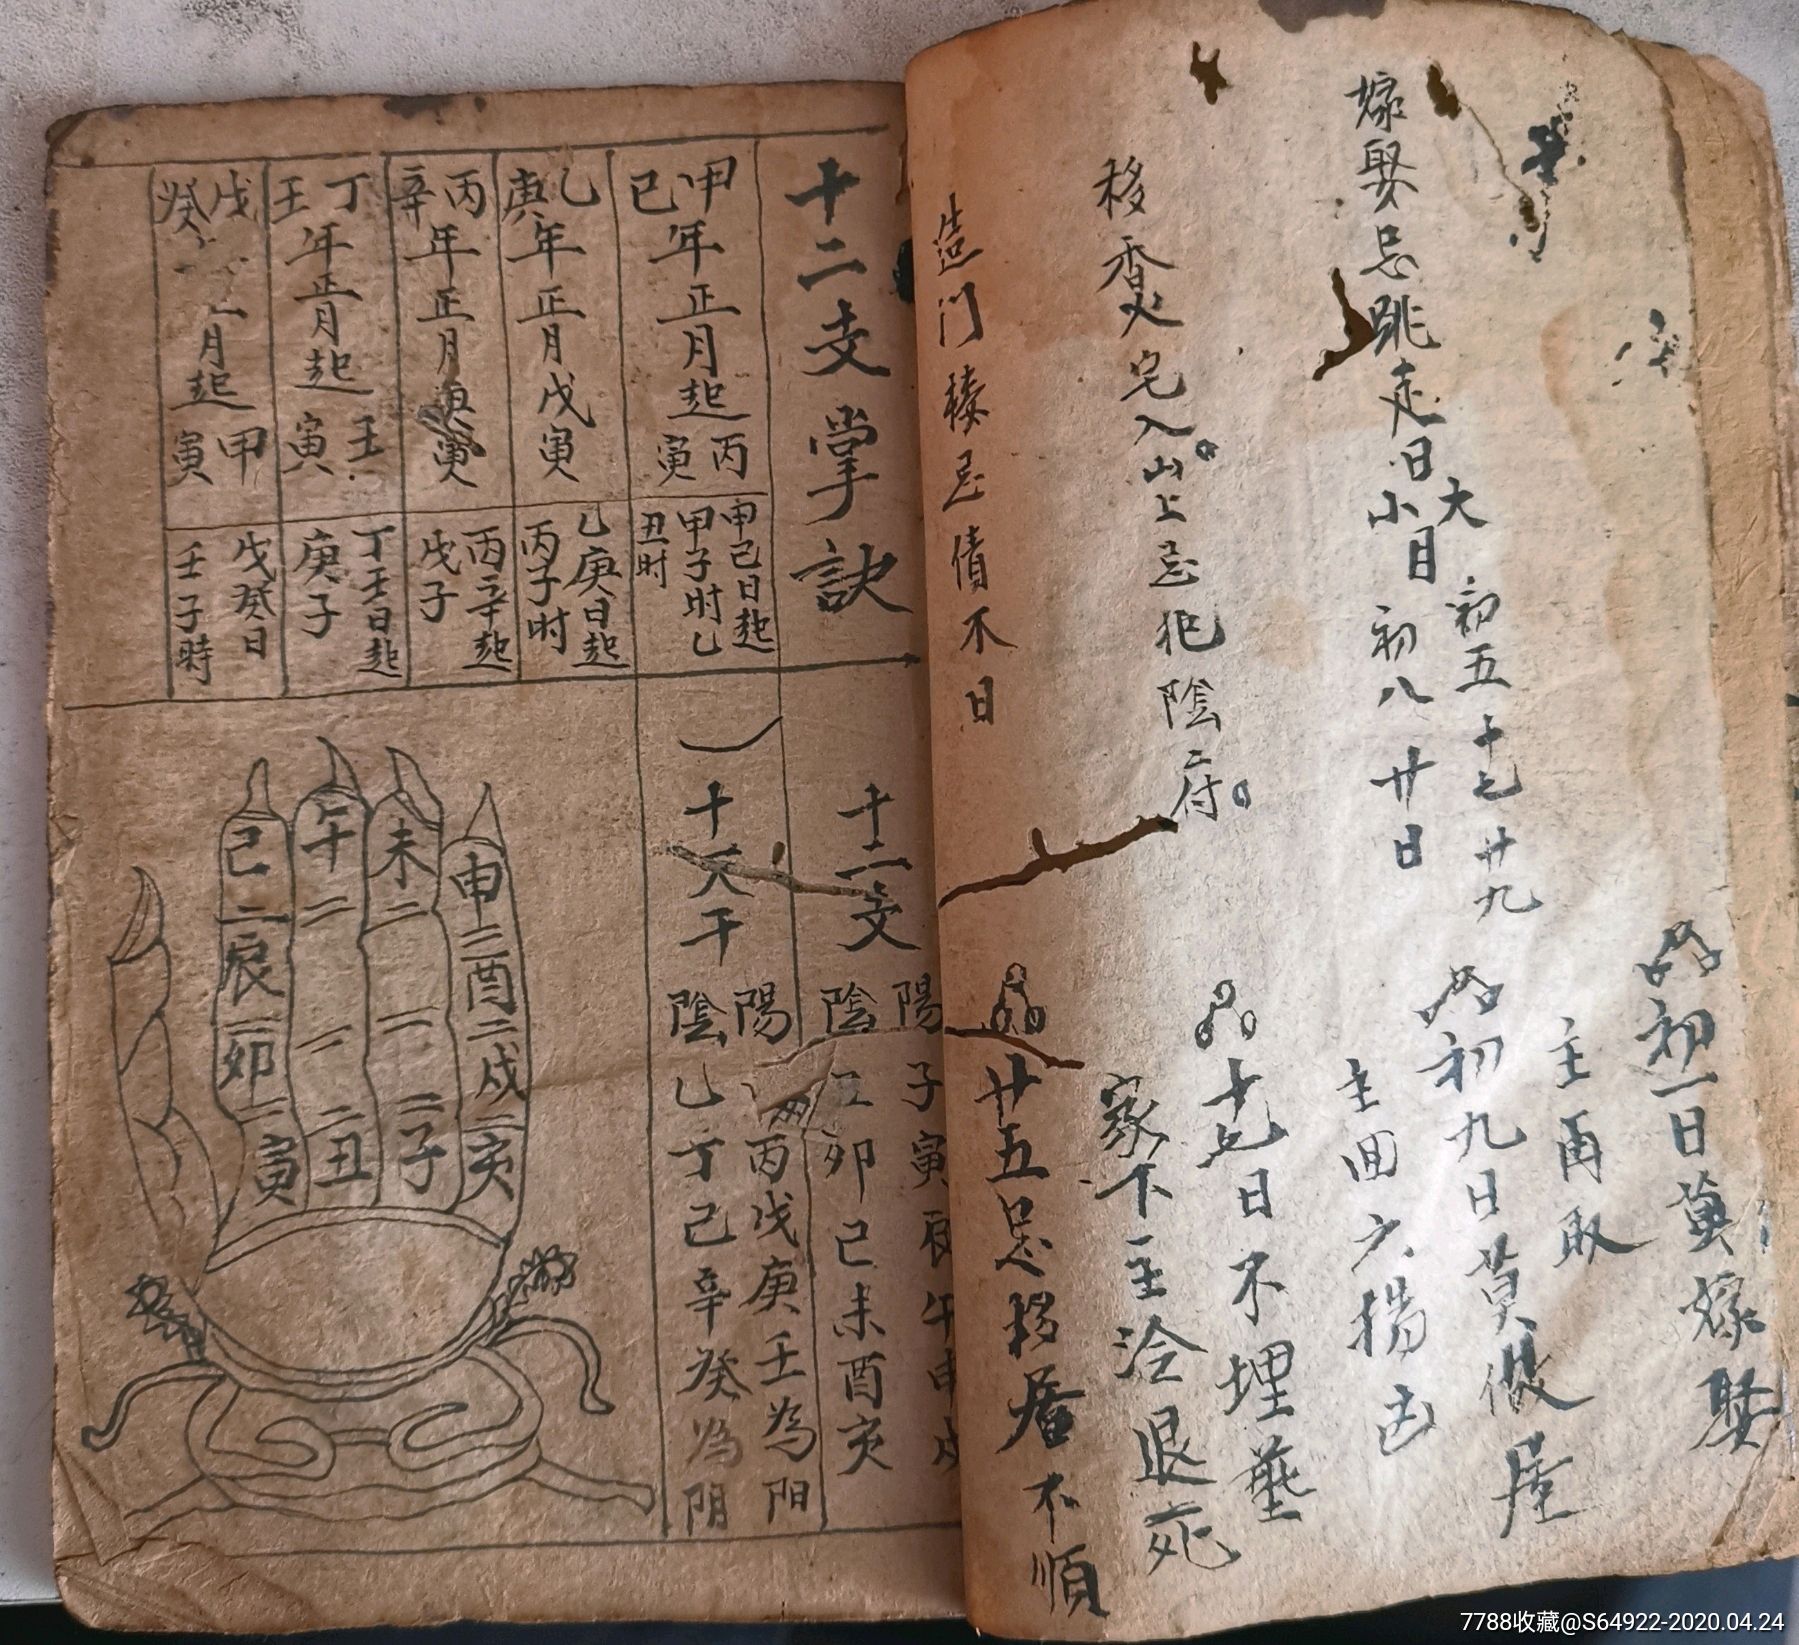 初一日莫嫁娶
主再取
初九日莫做屋
主回六畜凶
十七日不埋葬
家下主冷退死
廿五忌移居不順
嫁娶忌跳走日
大
小月
初五十七廿九
初八廿日
移香火宅入山上忌犯陰府
造门楼忌债不日
十二支掌訣
甲己年正月起丙寅
乙庚年正月戊寅
丙辛年正月庚寅
丁壬年正月起壬寅
戊癸
月起甲寅
甲己日起甲子时乙丑时
乙庚日起丙子时
丙辛起戊子
丁壬日起庚子
戊癸日壬子時
十二支
陽子寅辰午申戌
陰
卯己未酉亥
十天干
陽
丙戊庚壬為阳
陰乙丁己辛癸為阴
己二辰二卯二寅
午二一二丑
未二一二子
申二酉二戌二亥
7788收藏@S64922-2020.04.24